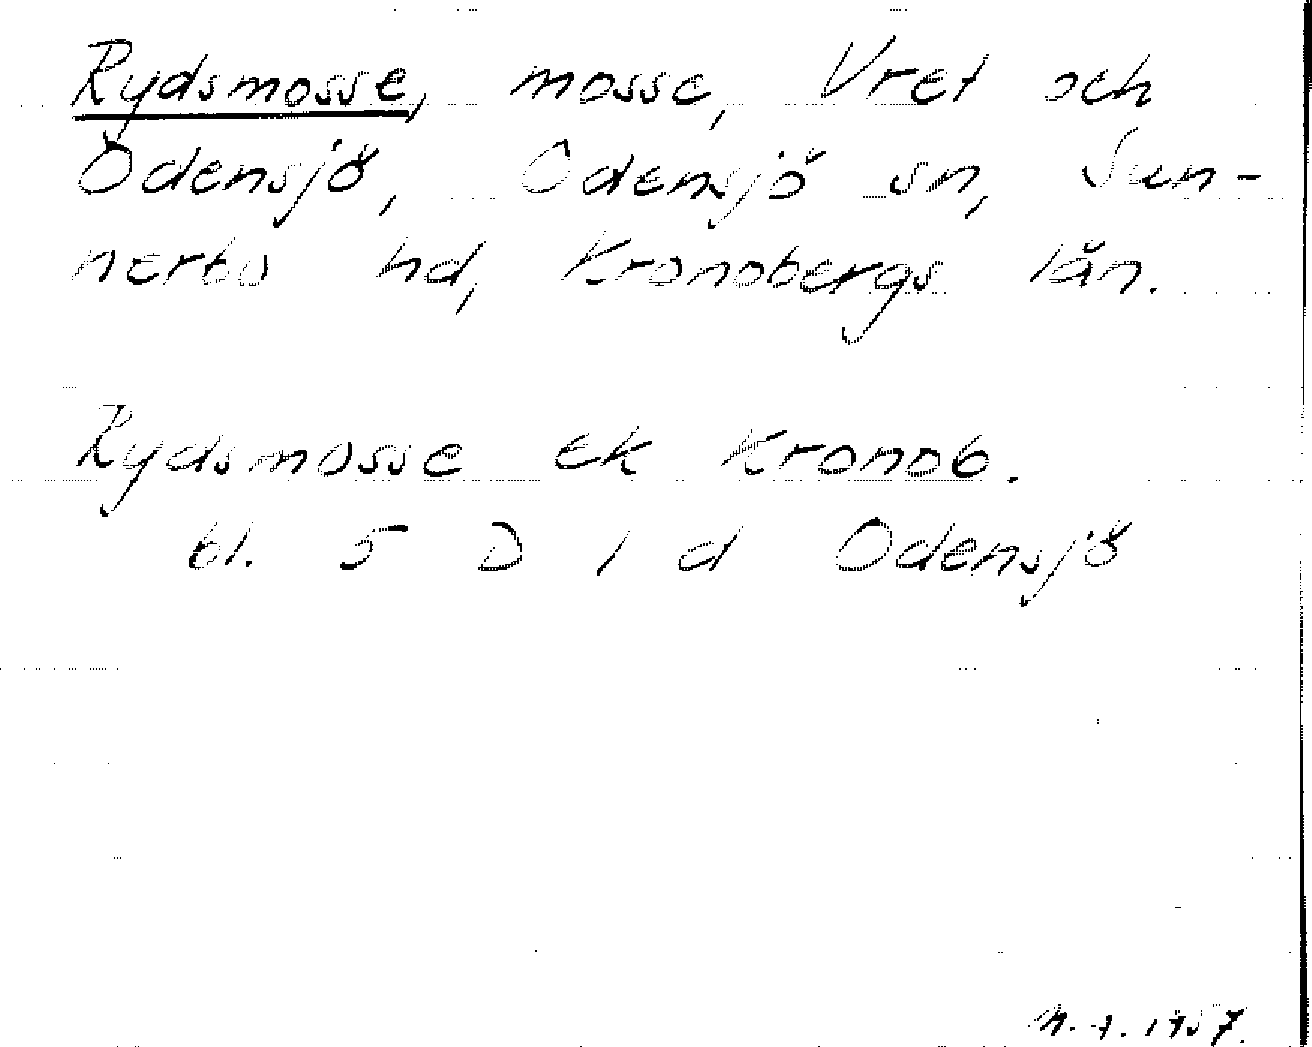 Rydsmosse, mosse, Vret och
Odensjö, Odensjö sn, Sun-
nerbo hd, Kronobergs län.
Rydsmosse ek Kronob.
bl. 5 D 1 d Odensjö